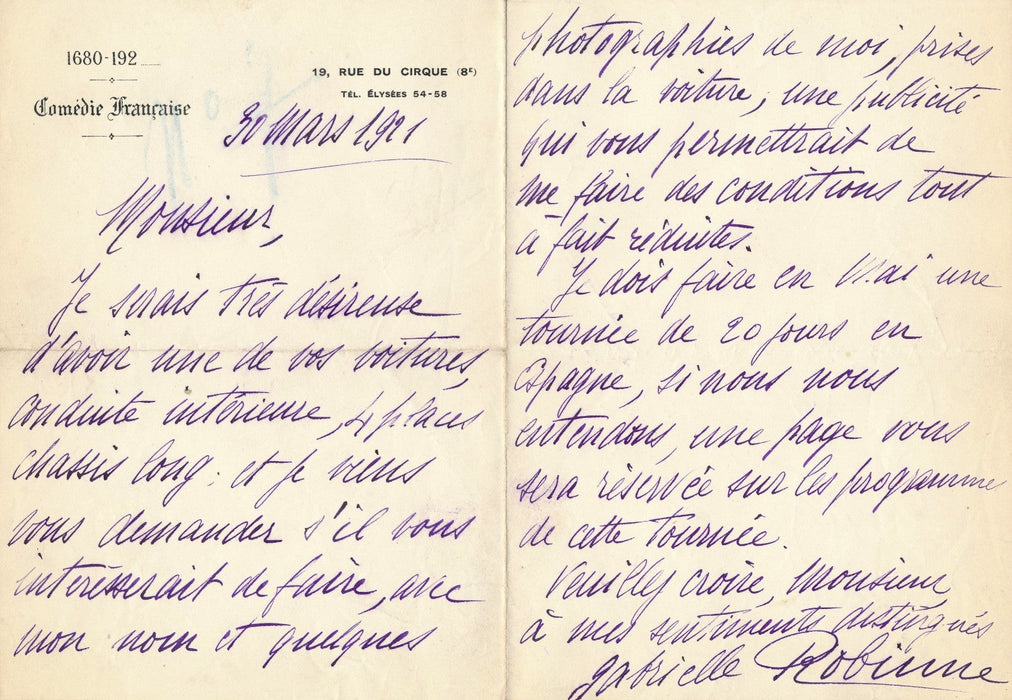 1680-192
Comédie Française
19, RUE DU CIRQUE (8ᴱ)
TÉL. ÉLYSÉES 54-58
30 Mars 1921
Monsieur,
Je serais très désireuse
d'avoir une de vos voitures,
conduite intérieure, 4 places
chassis long; et je viens
vous demander s'il vous
intéresserait de faire, avec
mon nom et quelques
photographies de moi, prises
dans la voiture, une publicité
qui vous permettrait de
me faire des conditions tout
à fait réduites.
Je dois faire en Mai une
tournée de 20 jours en
Espagne, si nous nous
entendons, une page vous
sera réservée sur les programme
de cette tournée.
Veuillez croire, Monsieur,
à mes sentiments distingués
Gabrielle Robinne